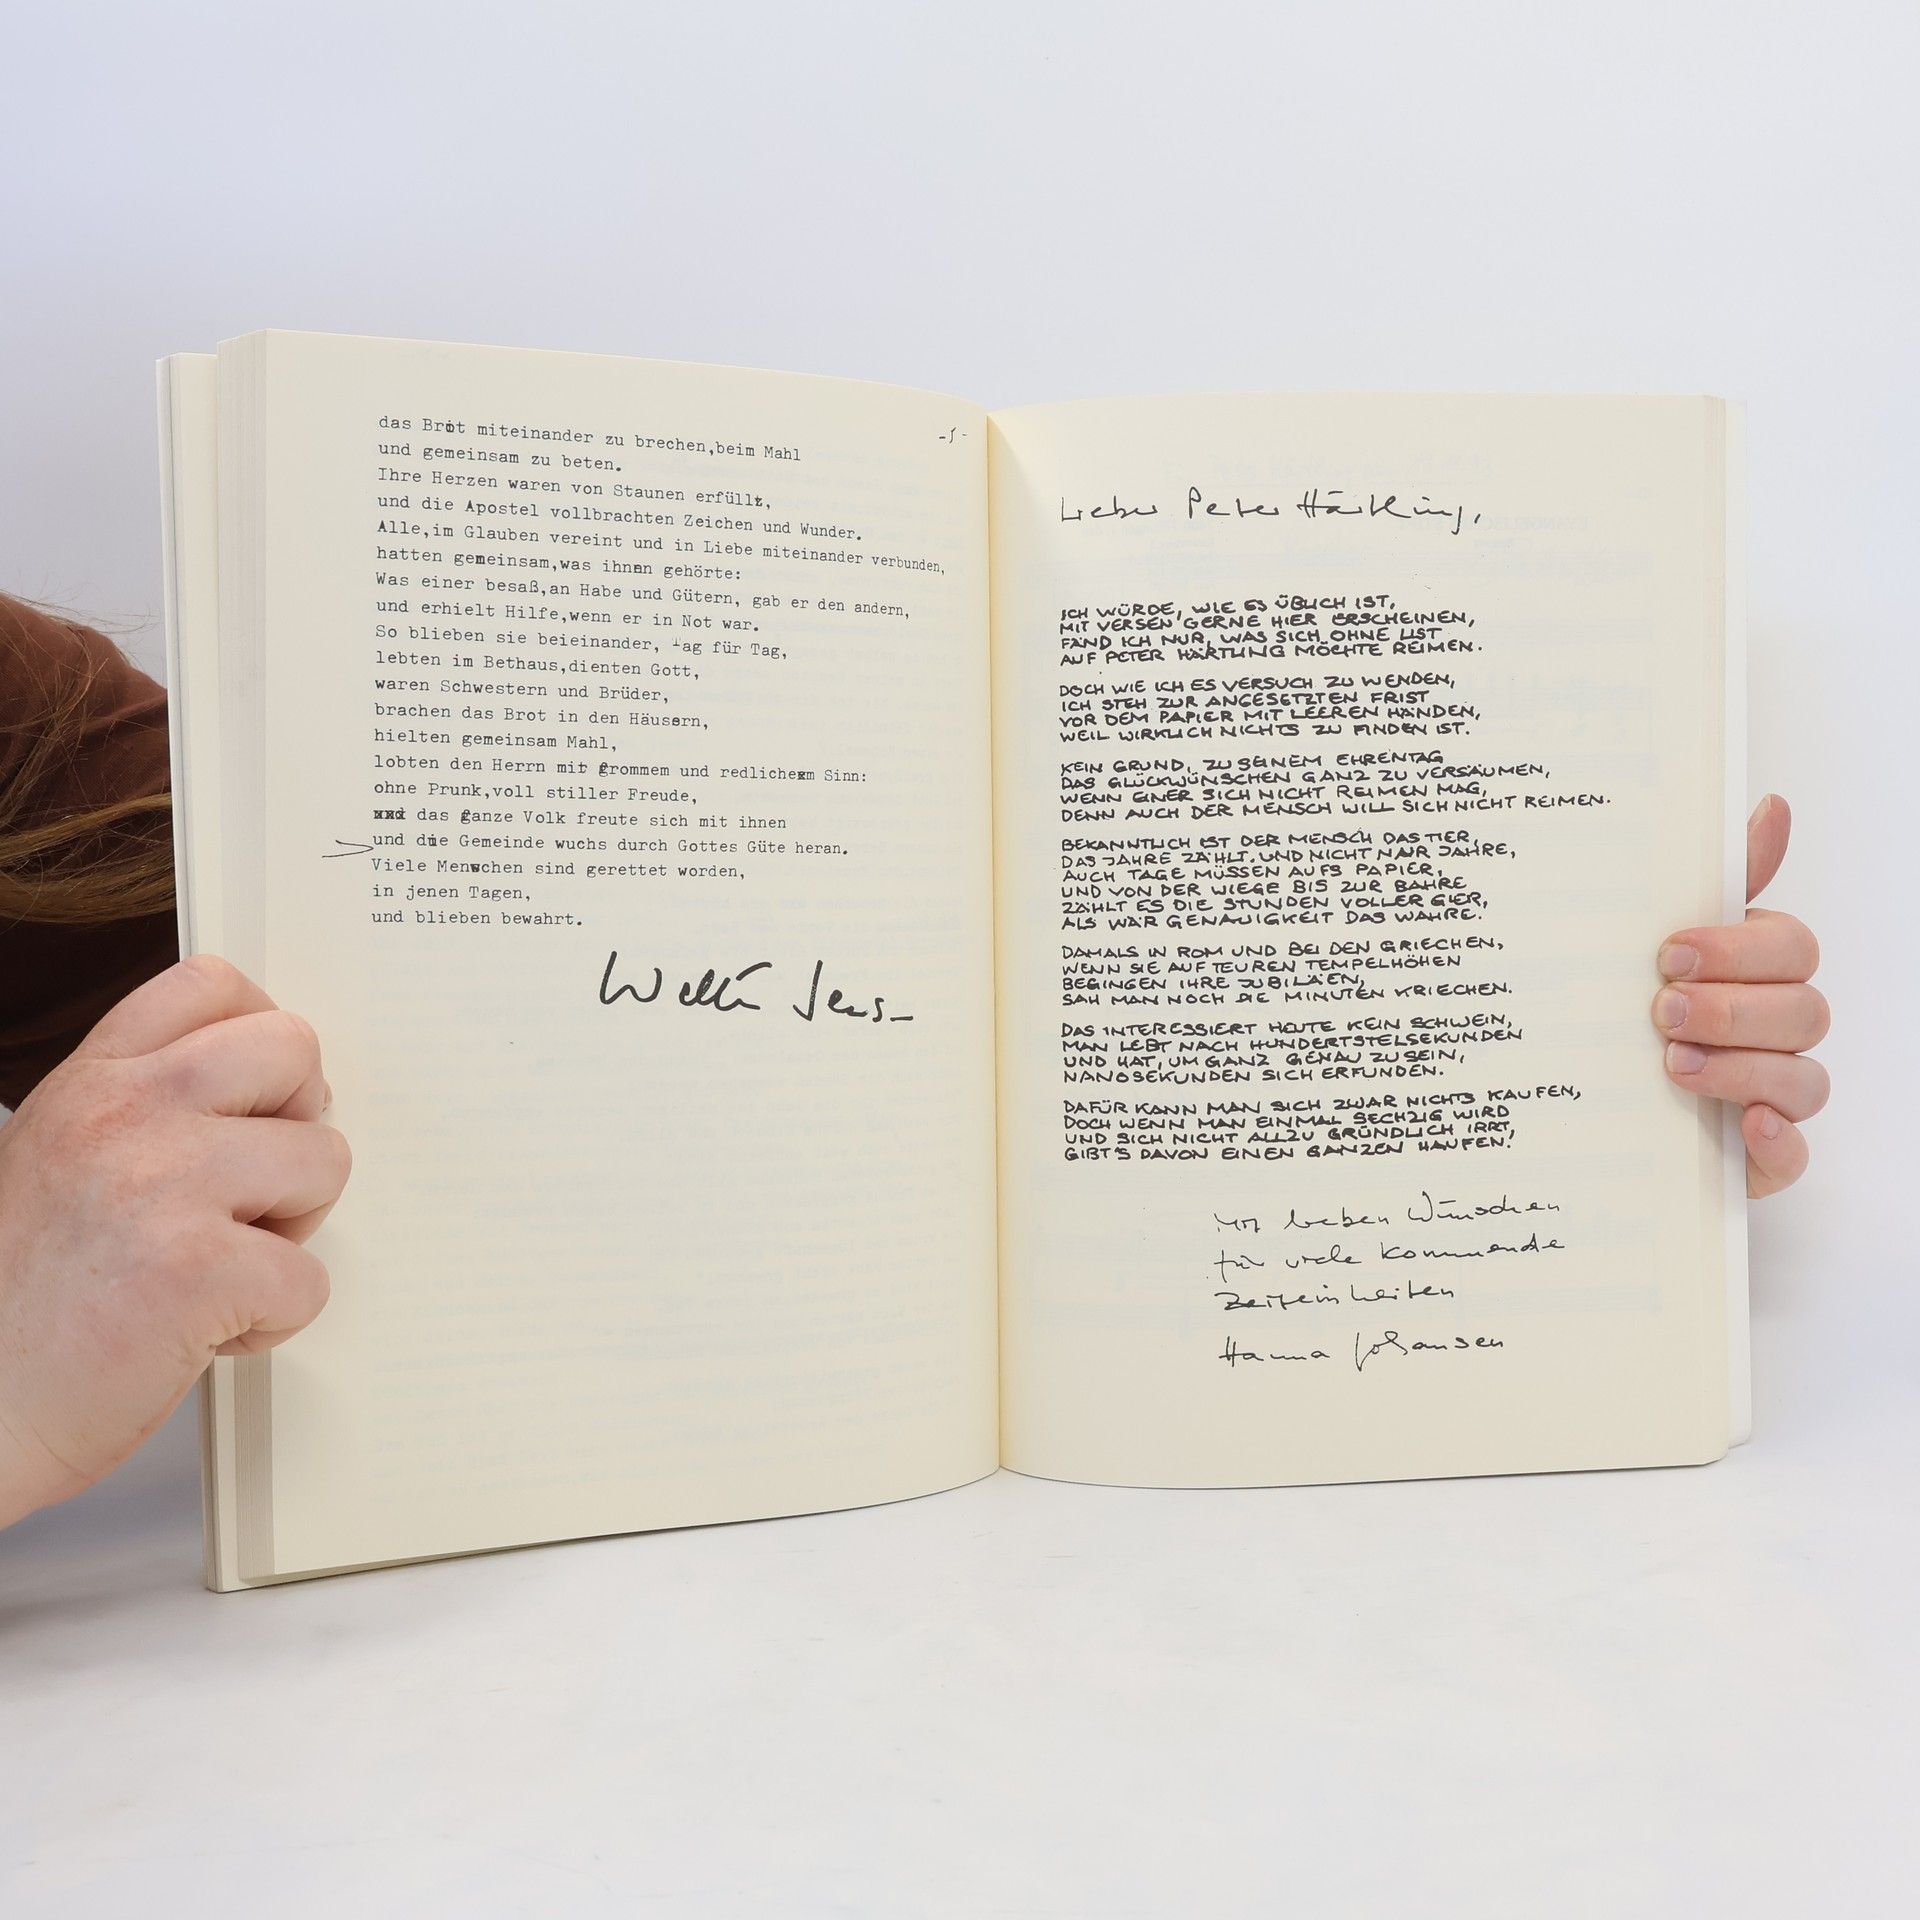 -5-
das Brot miteinander zu brechen,beim Mahl
und gemeinsam zu beten.
Ihre Herzen waren von Staunen erfüllt,
und die Apostel vollbrachten Zeichen und Wunder.
Alle,im Glauben vereint und in Liebe miteinander verbunden,
hatten gemeinsam,was ihnen gehörte:
Was einer besaß,an Habe und Gütern, gab er den andern,
und erhielt Hilfe,wenn er in Not war.
So blieben sie beieinander, Tag für Tag,
lebten im Bethaus,dienten Gott,
waren Schwestern und Brüder,
brachen das Brot in den Häusern,
hielten gemeinsam Mahl,
lobten den Herrn mit frommem und redlichem Sinn:
ohne Prunk,voll stiller Freude,
und das ganze Volk freute sich mit ihnen
und die Gemeinde wuchs durch Gottes Güte heran.
Viele Menschen sind gerettet worden,
in jenen Tagen,
und blieben bewahrt.
Walter Jens-
Lieber Peter Härtling,
ICH WÜRDE, WIE ES ÜBLICH IST,
MIT VERSEN GERNE HIER ERSCHEINEN,
FÄND ICH NUR, WAS SICH OHNE LIST
AUF PETER HÄRTLING MÖCHTE REIMEN.
DOCH WIE ICH ES VERSUCH ZU WENDEN,
ICH STEH ZUR ANGESETZTEN FRIST
VOR DEM PAPIER MIT LEEREN HÄNDEN,
WEIL WIRKLICH NICHTS ZU FINDEN IST.
KEIN GRUND, ZU SEINEM EHRENTAG
DAS GLÜCKWÜNSCHEN GANZ ZU VERSÄUMEN,
WENN EINER SICH NICHT REIMEN MAG,
DENN AUCH DER MENSCH WILL SICH NICHT REIMEN.
BEKANNTLICH IST DER MENSCH DAS TIER,
DAS JAHRE ZÄHLT. UND NICHT NUR JAHRE,
AUCH TAGE MÜSSEN AUFS PAPIER,
UND VON DER WIEGE BIS ZUR BAHRE
ZÄHLT ES DIE STUNDEN VOLLER GIER,
ALS WÄR GENAUIGKEIT DAS WAHRE.
DAMALS IN ROM UND BEI DEN GRIECHEN,
WENN SIE AUF TEUREN TEMPELHÖHEN
BEGINGEN IHRE JUBILÄEN,
SAH MAN NOCH DIE MINUTEN KRIECHEN.
DAS INTERESSIERT HEUTE KEIN SCHWEIN,
MAN LEBT NACH HUNDERTSTELSEKUNDEN
UND HAT, UM GANZ GENAU ZU SEIN,
NANOSEKUNDEN SICH ERFUNDEN.
DAFÜR KANN MAN SICH ZWAR NICHTS KAUFEN,
DOCH WENN MAN EINMAL SECHZIG WIRD
UND SICH NICHT ALLZU GRÜNDLICH IRRT,
GIBT'S DAVON EINEN GANZEN HAUFEN!
Mit lieben Wünschen
für viele kommende
Zeiteinheiten
Hanna Johansen